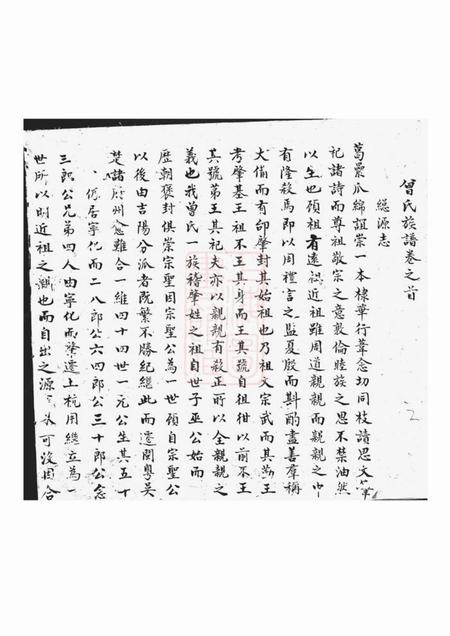 曾氏族譜卷之首
總源志
葛藟瓜綿誼崇一本棣華行葦念切同枝讀思文肇
祀諸詩而尊祖敬宗之意敦倫睦族之思不禁油然
以生也顧祖有遠祖近祖雖周道親親而親親之中
有隆殺焉即以周禮言之監夏殷而斟酌盡善羣稱
大備而有邰肇封其始祖也乃祖文宗武而其勤王
考肇基王祖不王其身而王其號自祖紺以前不王
其號第王其祀夫亦以親親有殺正所以全親親之
義也我曾氏一族稽肇姓之祖自世子巫公始而
歷朝褒封俱崇宗聖因宗聖公為一世顧自宗聖公
以後由吉陽分派者既繁不勝紀繼此而遷閩粵吳
楚諸府州愈難合一維四十四世一元公生其五十
仍居寧化而二八郎公六四郎公三十郎公念
三郎公兄弟四人由寧化而遷上杭用繼立為一
世所以明近祖之也而自出之源可沒因合